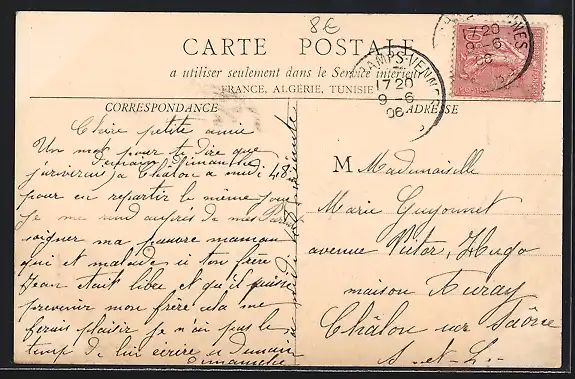 8€
CARTE POSTALE
a utiliser seulement dans le Service intérieur
FRANCE, ALGERIE, TUNISIE
CORRESPONDANCE
ADRESSE
17 20
9 - 6
06
17 20
9 - 6
06
Chère petite amie
Un mot pour te dire que
demain dimanche
j'arriverai a Chalon a midi 48
pour en repartir le même jour
je me rend auprès de mes Parents
soigner ma pauvre maman
qui et malade si ton frère
Jean était libre et qu'il puisse
prevenir mon frère cela me
ferais plaisir je n'ai pas le
temp de lui écrire a demain
dimanche
M Mademoiselle
Marie Guyonnet
avenue Victor, Hugo
maison Auray
Châlon sur Saône
S-et-L-